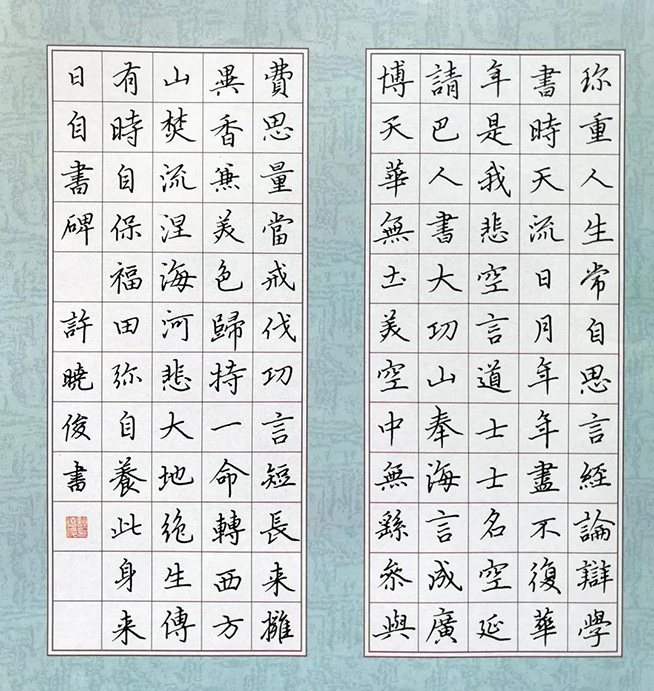 珎重人生常自思言經論辯學
書時天流日月年年盡不復華
年是我悲空言道士士名空延
請巴人書大功山奉海言成廣
博天華無土美空中無繇參與
費思量當戒伐功言短長来擁
異香兼美色歸持一命轉西方
山焚流涅海河悲大地絶生傳
有時自保福田弥自養此身来
日自書碑 許曉俊書